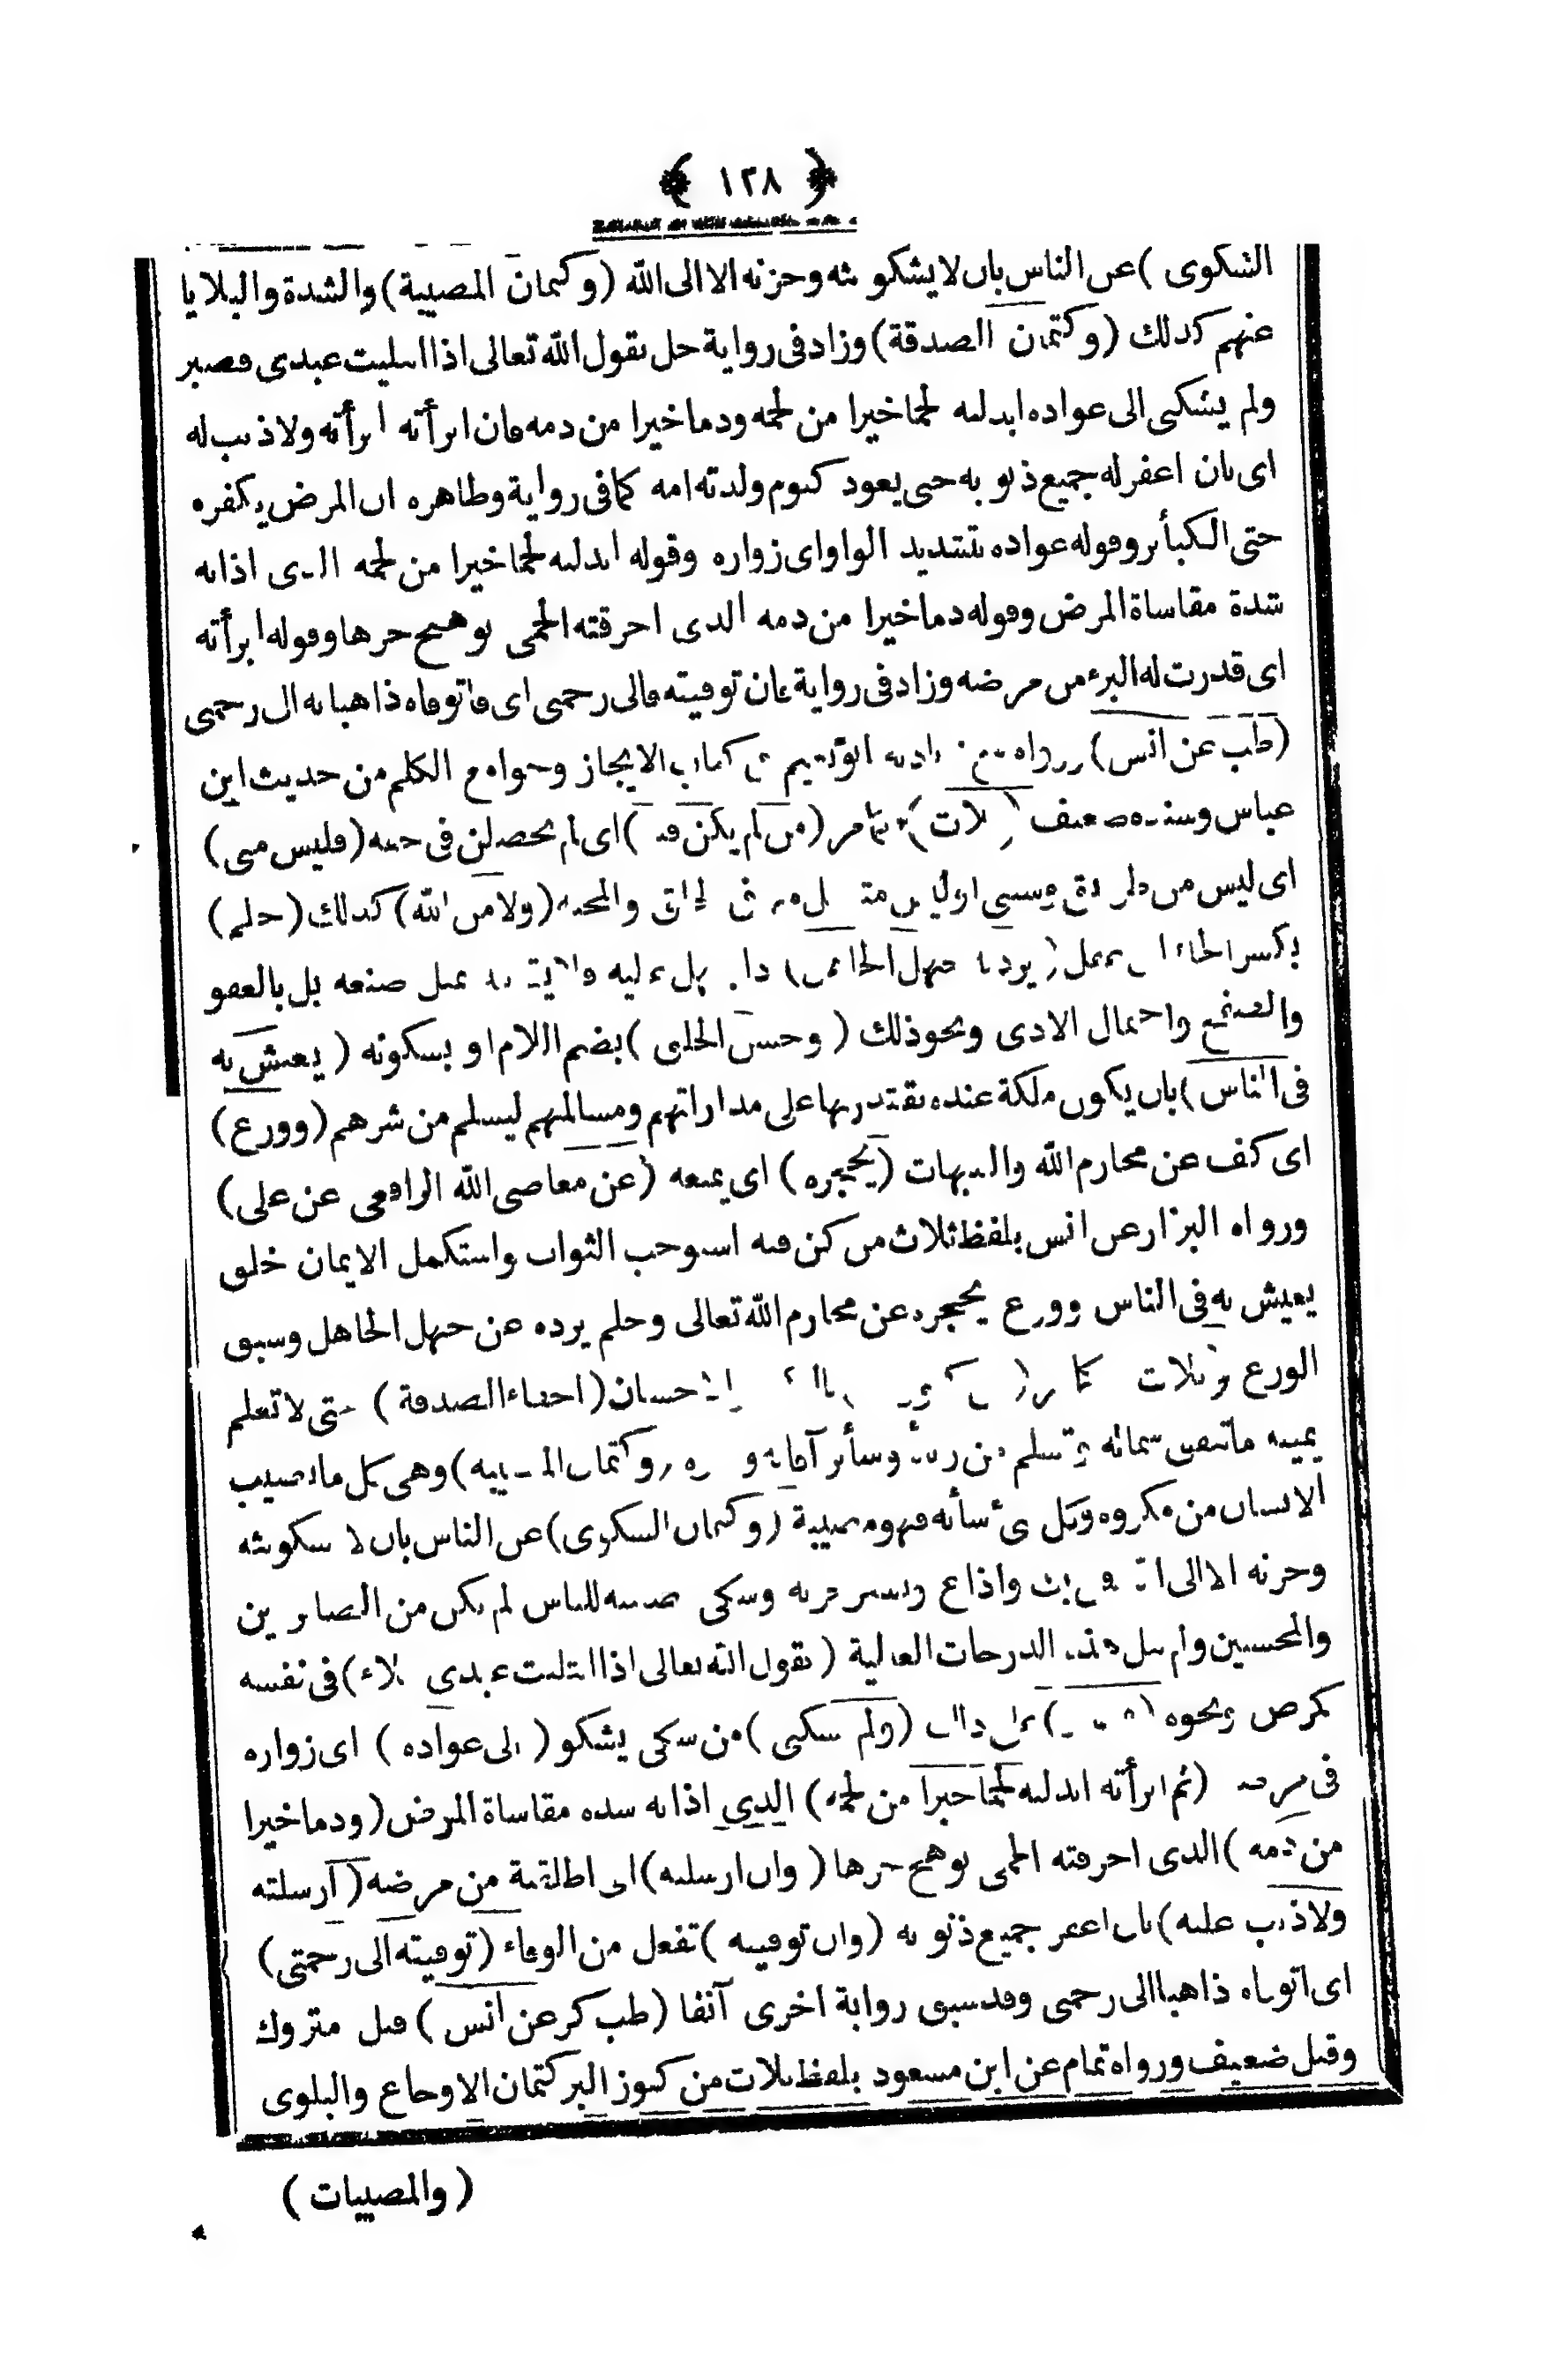 ﴿ ١٢٨ ﴾
الشكوى ) عن الناس بان لا يشكو بثه وحزنه الا الى الله ( وكتمان المصيبة ) والشدة والبلايا
عنهم كذلك ( وكتمان الصدقة ) وزاد فى رواية حل يقول الله تعالى اذا ابتليت عبدى فصبر
ولم يشكنى الى عواده ابدلته لحما خيرا من لحمه ودما خيرا من دمه فان ابرأته ابرأته ولا ذنب له
اى بان اغفر له جميع ذنوبه حتى يعود كيوم ولدته امه كما فى رواية وظاهره ان المرض يكفره
حتى الكبائر وقوله عواده بتشديد الواو اى زواره وقوله ابدلته لحما خيرا من لحمه الذى اذابه
شدة مقاساة المرض وقوله دما خيرا من دمه الذى احرقته الحمى بوهيج حرها وقوله ابرأته
اى قدرت له البرء من مرضه وزاد فى رواية فان توفيته فالى رحمتى اى فاتوفاه ذاهبا به الى رحمتى
( طب عن انس ) ورواه كتاب الايجاز وجوامع الكلم من حديث ابن
عباس وسنده ضعيف ( ثلاث ) مر ( من لم يكن فيه ) اى لم يحصلن فى حقه ( فليس منى )
اى ليس من والمحبة ( ولا من الله ) كذلك ( حلم )
بكسر الحاء ( يرد به جهل الجاهل ) عليه بمثل صنعه بل بالعفو
والصفح واحتمال الاذى ونحو ذلك ( وحسن الخلق ) بضم اللام او بسكونه ( يعيش به
فى الناس ) بان يكون ملكة عنده يقتدر بها على مداراتهم ومسالمتهم ليسلم من شرهم ( وورع )
اى كف عن محارم الله والشبهات ( يحجره ) اى يمنعه ( عن معاصى الله الرافعى عن على )
ورواه البزار عن انس بلفظ ثلاث من كن فيه استوجب الثواب واستكمل الايمان خلق
يعيش به فى الناس وورع يحجره عن محارم الله تعالى وحلم يرده عن جهل الجاهل وسبق
الورع وثلاث الاحسان ( اخفاء الصدقة ) حتى لا تعلم
يمينه ما تنفق شماله وسائر آفاته ( وكتمان المصيبة ) وهى كل ما يصيب
الانسان من مكروه وكل شئ ساءه فهو مصيبة ( وكتمان الشكوى ) عن الناس بان لا يشكو بثه
وحزنه الا الى الله بث واذاع ونشر حزنه وشكى مصيبته للناس لم يكن من الصابرين
والمحسنين ولم ينل هذه الدرجات العالية ( يقول الله تعالى اذا ابتليت عبدى ببلاء ) فى نفسه
كمرض ونحوه على ذلك ( ولم يشكنى ) من شكى يشكو ( الى عواده ) اى زواره
فى مرضه ( ثم ابرأته ابدلته لحما خيرا من لحمه ) الذى اذابه شدة مقاساة المرض ( ودما خيرا
من دمه ) الذى احرقته الحمى بوهيج حرها ( وان ارسلته ) اى اطلقته من مرضه ( ارسلته
ولا ذنب عليه ) بان اغفر جميع ذنوبه ( وان توفيته ) تفعل من الوفاء ( توفيته الى رحمتى )
اى اتوفاه ذاهبا الى رحمتى وقد سبق رواية اخرى آنفا ( طب كر عن انس ) قيل متروك
وقيل ضعيف ورواه تمام عن ابن مسعود بلفظ ثلاث من كنوز البر كتمان الاوجاع والبلوى
( والمصيبات )